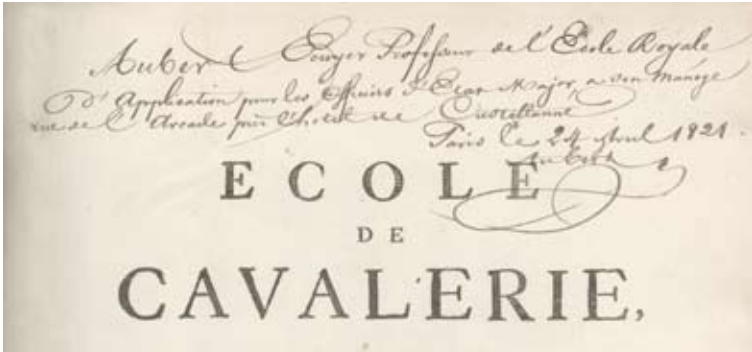 Aubert Ecuyer Professeur de l'Ecole Royale
D'Application pour les Officiers d'Etat Major, a son manège
rue de l'Arcade près l'hotel de
Paris le 24 avril 1821.
Aubert
ECOLE
DE
CAVALERIE,